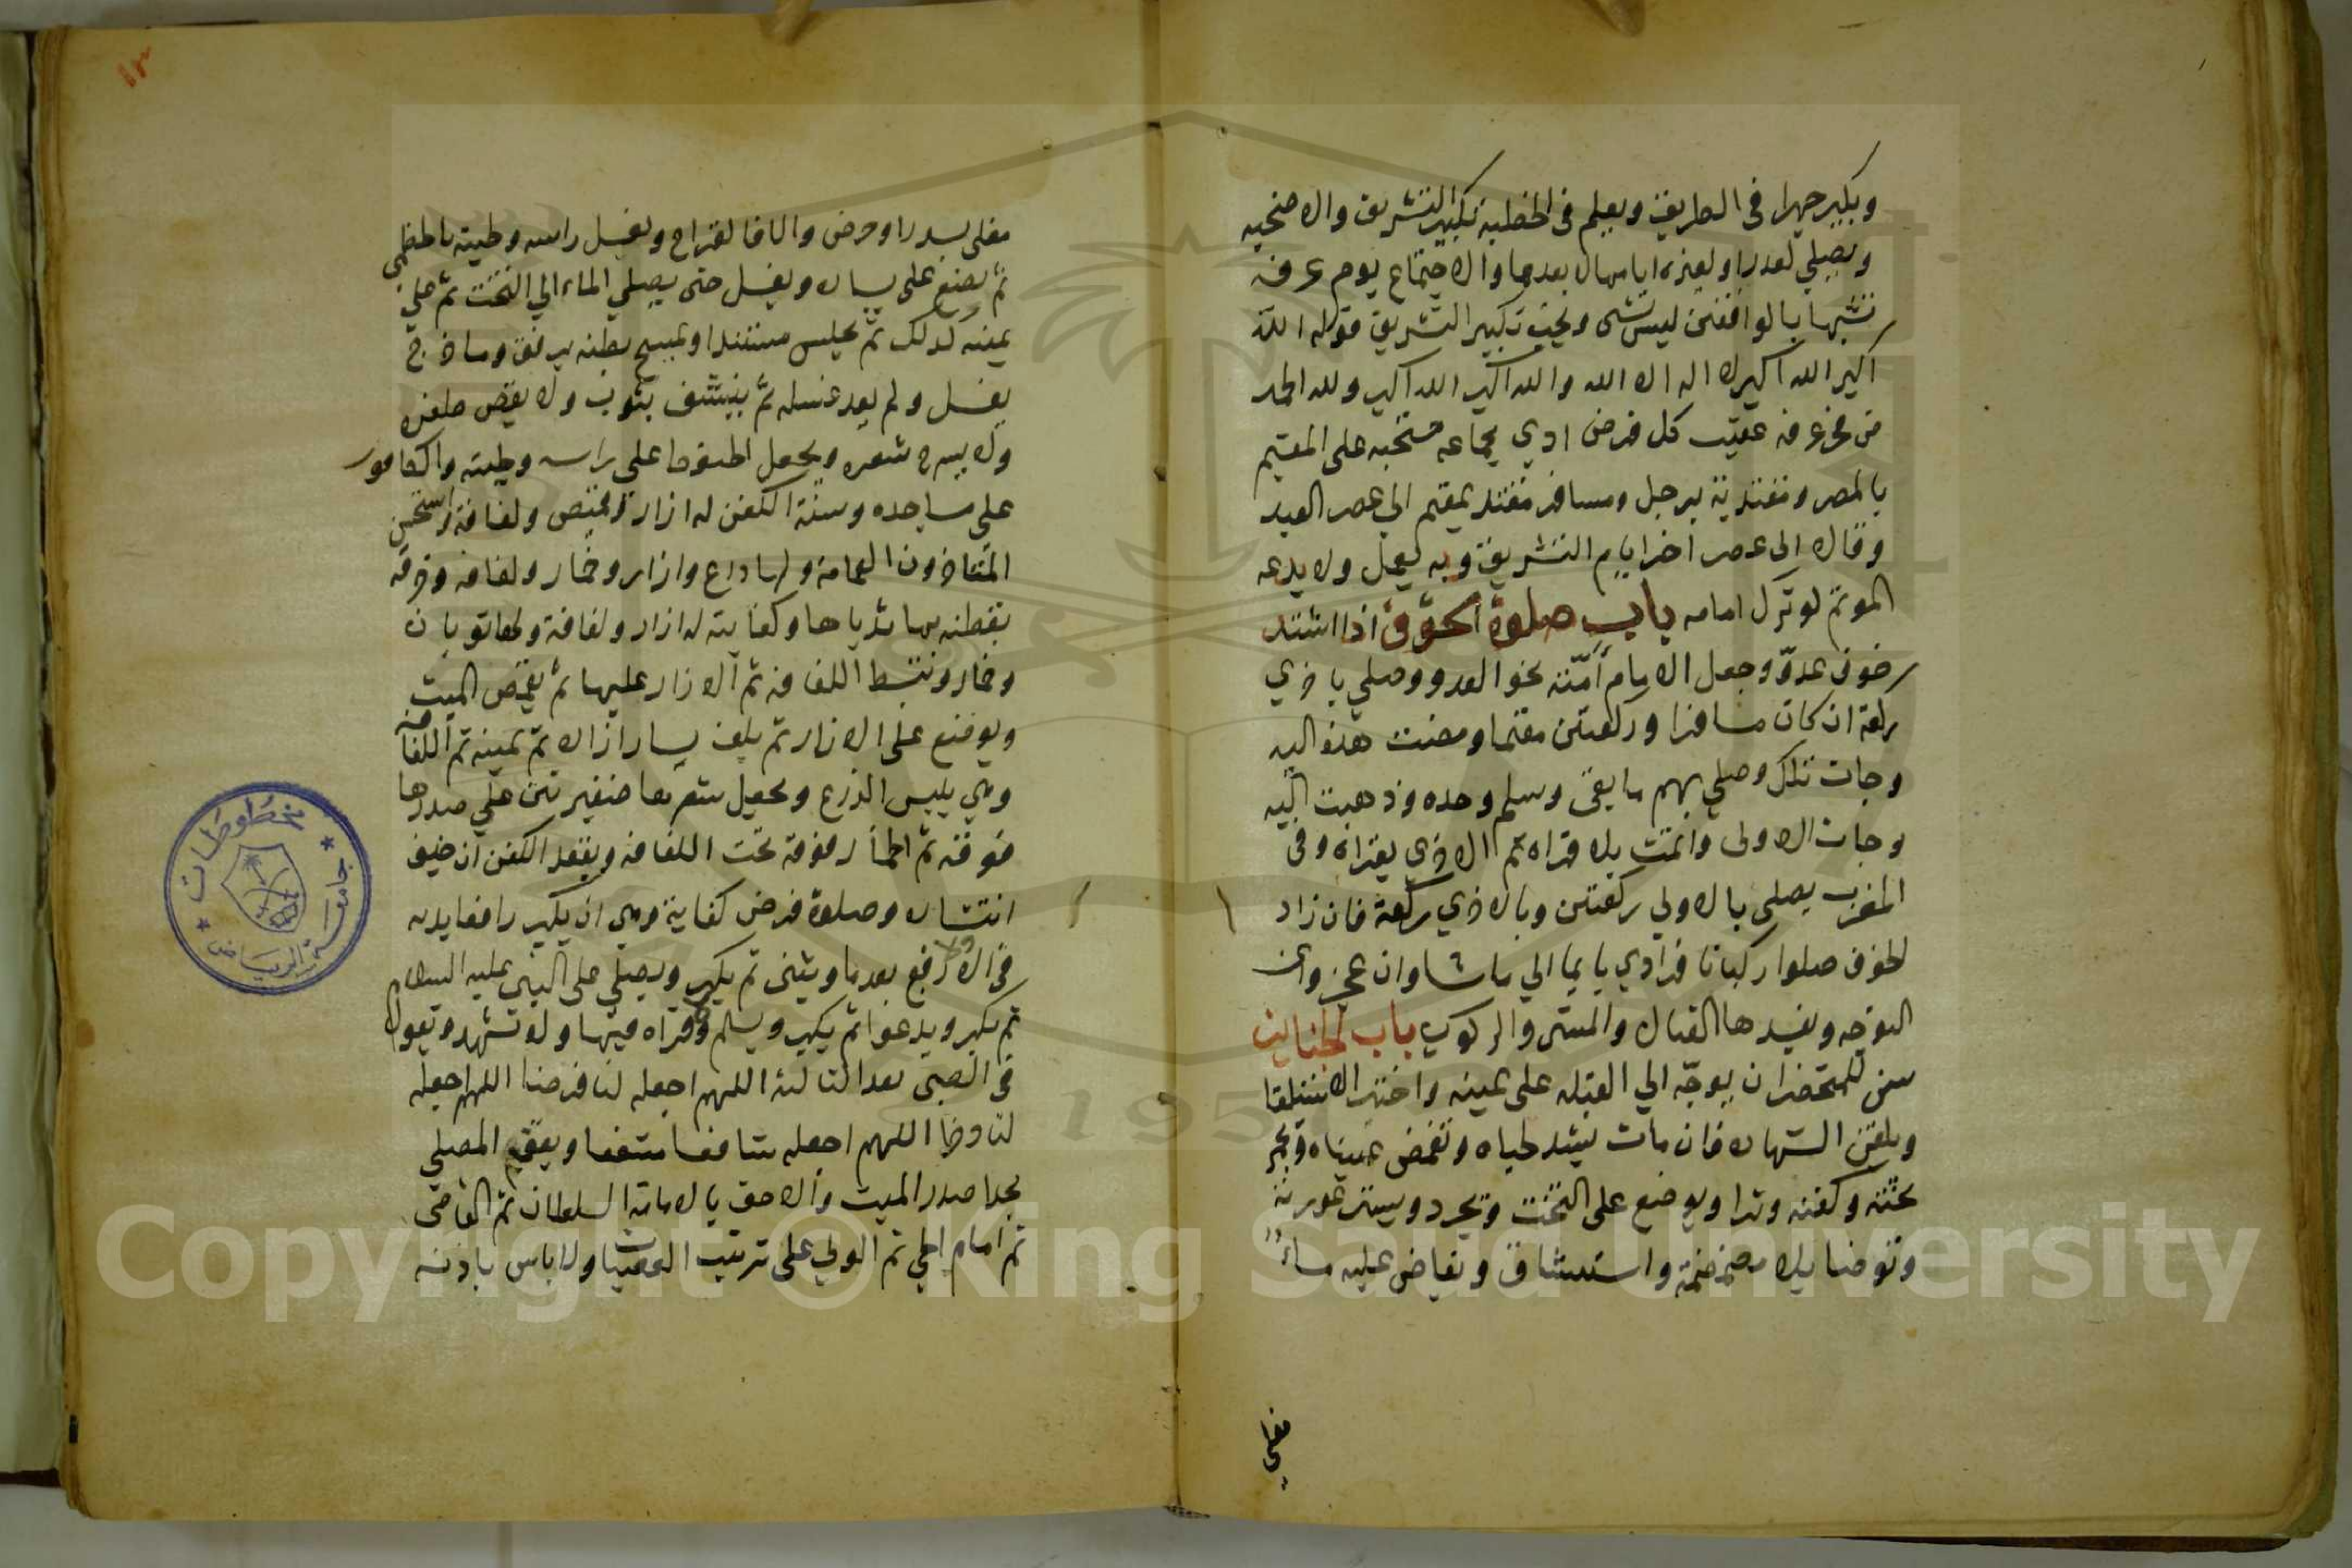 ويكبر جهرا في الطريق ويعلم في الخطبة تكبير التشريق والاضحيه
ويصلي لعذر او لغيره ايامها لا بعدها والاجتماع يوم عرفه
تشبها بالواقفين ليس بشى ويجب تكبير التشريق قوله الله
اكبر الله اكبر لا اله الا الله والله اكبر الله اكبر ولله الحمد
من فجر عرفه عقيب كل فرض ادي بجماعه مستحبه على المقيم
بالمصر ومقتدية برجل ومسافر مقتد بمقيم الى عصر العيد
وقالا الى عصر اخر ايام التشريق وبه يعمل ولا يدعه
الموتم لو ترك امامه باب صلوة الخوف اذا اشتد
خوف عدو وجعل الامام امته نحو العدو وصلي باخري
ركعة ان كان مسافرا وركعتين مقيما ومضت هذه اليه
وجات تلك وصلي بهم ما بقى وسلم وحده وذهبت اليه
وجات الاولى واتمت بلا قراه ثم الاخري بقراه وفى
المغرب يصلى بالاولي ركعتين وبالاخري ركعة فان زاد
الخوف صلوا ركبانا فرادي بايما الي ما شاوا ان عجزوا عن
التوجه ويفسدها القتال والمشى والركوب باب الجنايز
سن للمحتضر ان يوجه الي القبله على يمينه واختير الاستلقا
ويلقن الشهاده فان مات يشد لحياه وتغمض عيناه ويجمر
تخته وكفنه وترا ويوضع على التخت ويجرد ويستر عورته
وتوضا بلا مضمضة واستنشاق ويفاض عليه ماء
مغلي
١٢
مغلى بسدر او حرض والا فالقراح ويغسل راسه ولحيته بالخطمي
ثم يضجع على يساره ويغسل حتى يصلي الماء الي التخت ثم علي
يمينه كذلك ثم يجلس مستندا ويمسح بطنه برفق وما خرج
يغسل ولم يعد غسله ثم ينشف بثوب ولا يقص ظفره
ولا يسرح شعره ويجعل الحنوط على راسه ولحيته والكافور
على مساجده وسنة الكفن له ازار وقميص ولفافة واستحسن
المتاخرون العمامة ولها درع وازار وخمار ولفافه وخرقه
يربط بها ثدياها وكفايته له ازار ولفافة ولها ثوبان
وخمار وتبسط اللفافه ثم الازار عليها ثم يقمص الميت
ويوضع على الازار ثم يلف يسار ازاره ثم يمينه ثم اللفافه
وهي يلبس الدرع ويجعل شعرها ضفيرتين على صدرها
فوقه ثم الخمار فوقه تحت اللفافه ويعقد الكفن ان خيف
انتشاره وصلوة فرض كفاية وهي ان يكبر رافعا يديه
ولا رفع بعدها ويثنى ثم يكبر ويصلي على النبي عليه السلام
ثم يكبر ويدعوا ثم يكبر ويسلم ولا قراه فيها ولا تشهد ويقول
في الصبى بعد الثالثه اللهم اجعله لنا فرطا اللهم اجعله
لنا ذخرا اللهم اجعله شافعا مشفعا ويقوم المصلي
بحدا صدر الميت والاحق بالامامة السلطان ثم القاضى
ثم امام الحي ثم الولي على ترتيب العصبات ولا باس باذنه
مخطوطات
جامعة الرياض
1957
Copyright © King Saud University